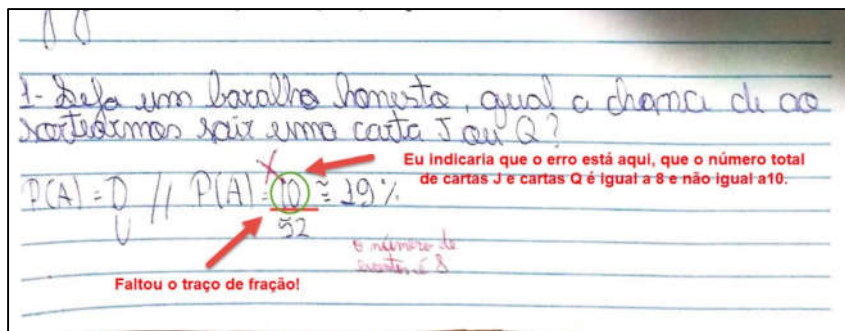 1- Seja um baralho honesto, qual a chance de ao
sortearmos sair uma carta J ou Q?
Eu indicaria que o erro está aqui, que o número total
de cartas J e cartas Q é igual a 8 e não igual a10.
P(A) = // P(A) = 10 ≅ 19%
52
o número de
eventos é 8
Faltou o traço de fração!